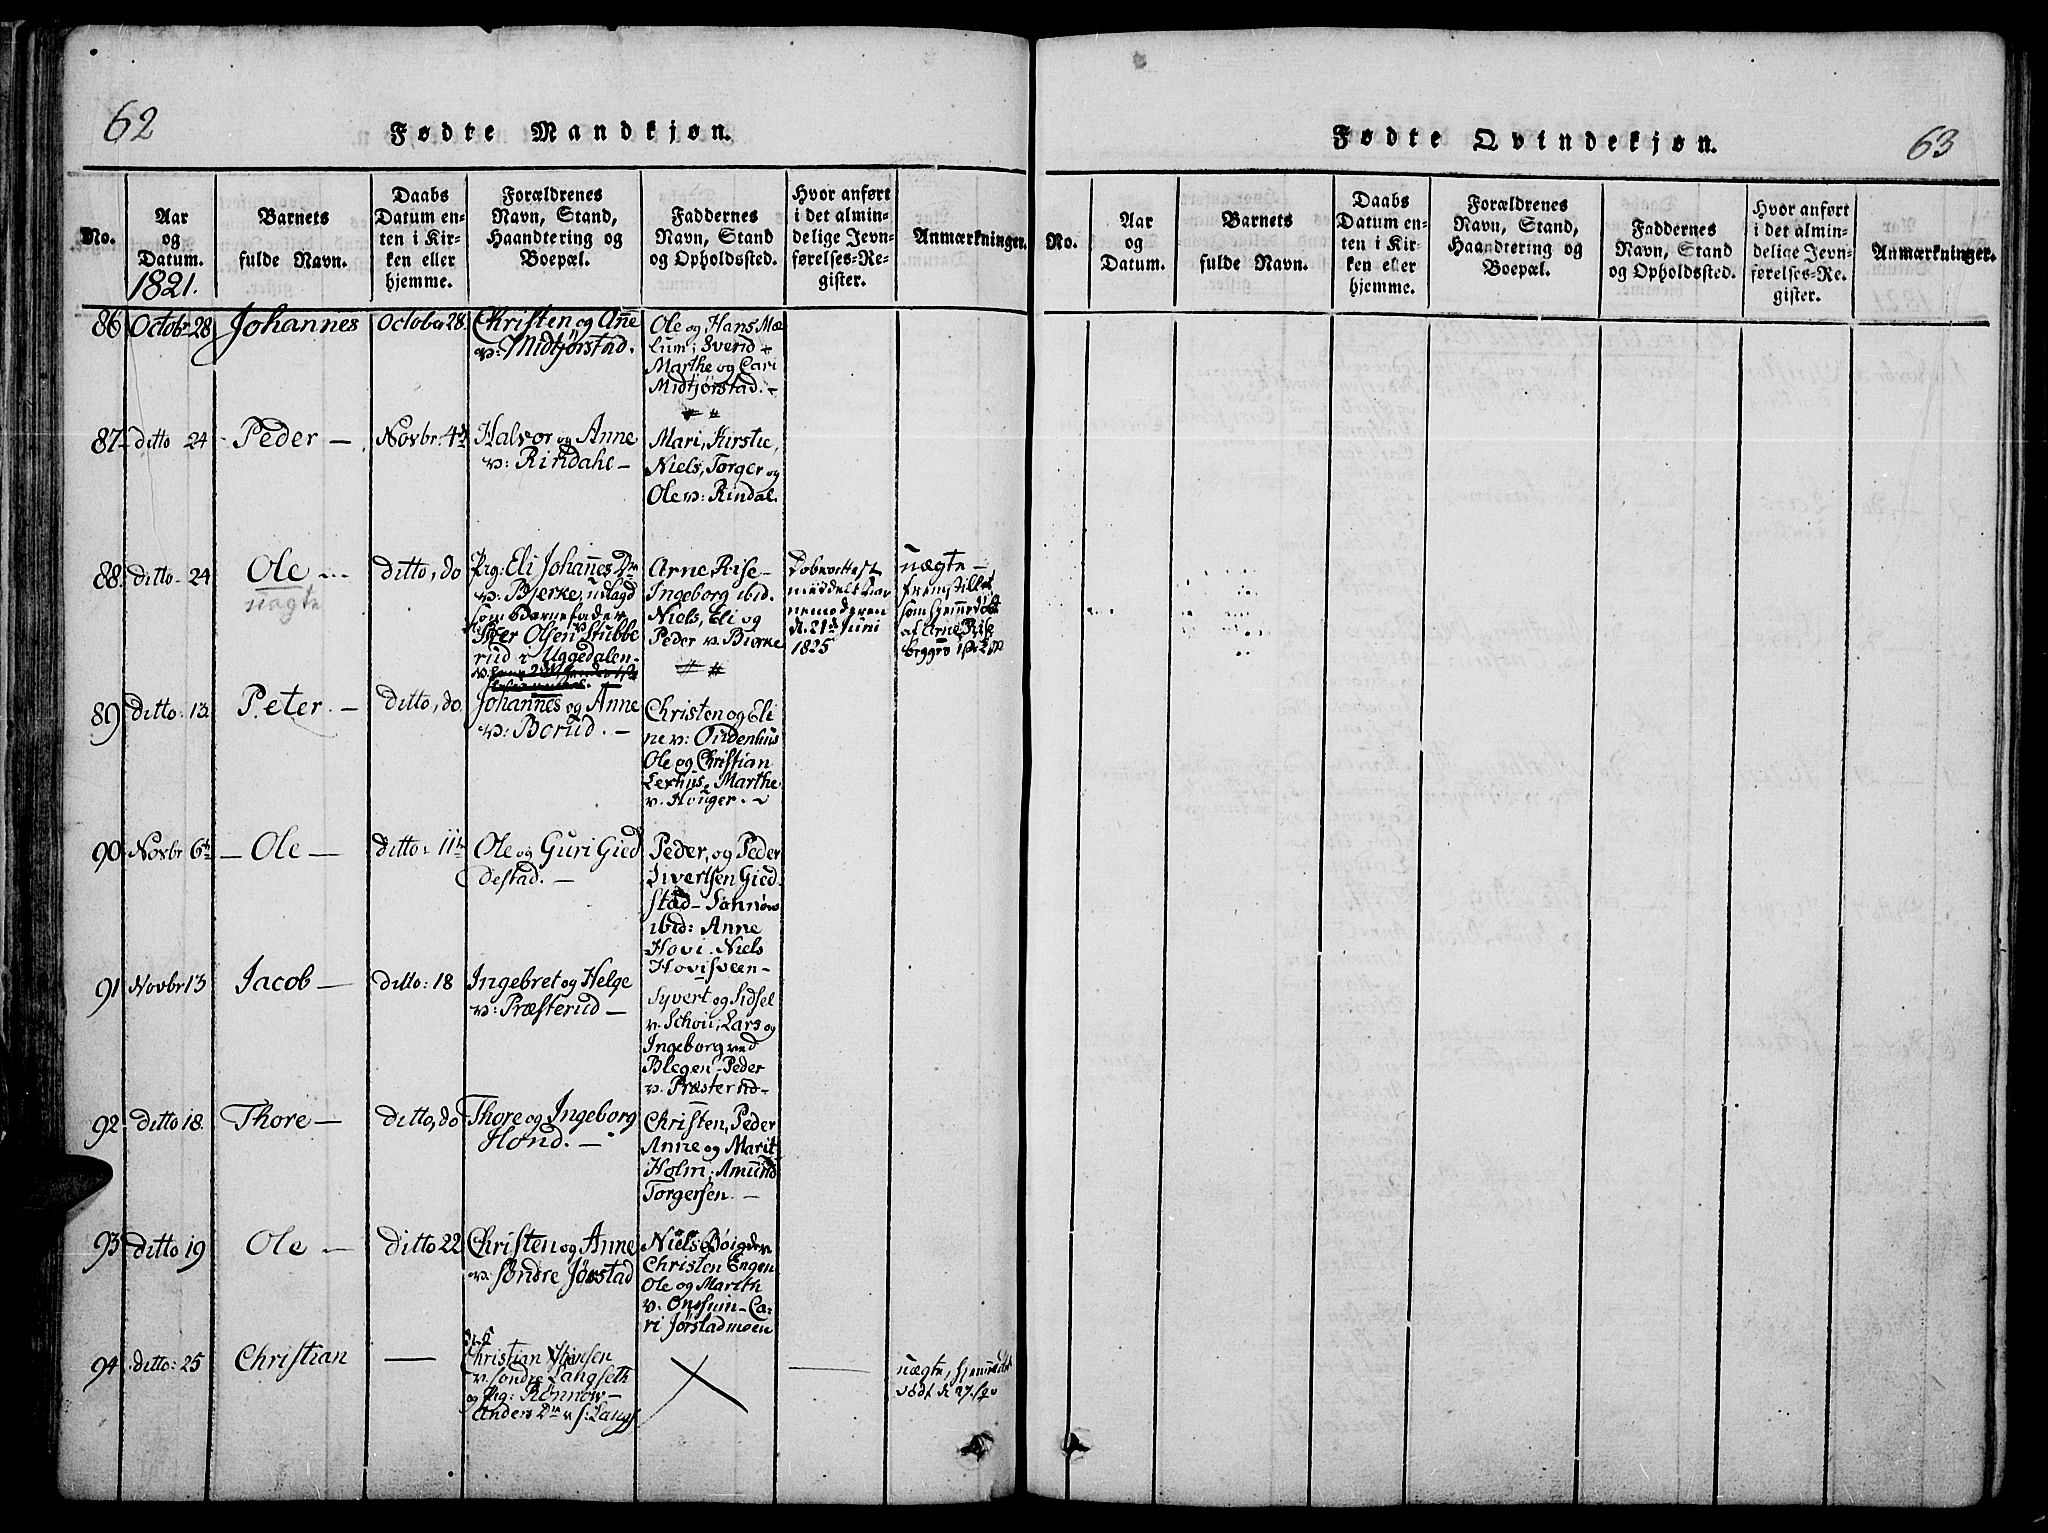 62
Fødte Mandkjøn.
No.
Aar
og
Datum.
1821.
Barnets
fulde Navn.
Daabs
Datum en-
ten i Kir-
ken eller
hjemme.
Forældrenes
Navn, Stand,
Haandtering og
Boepæl.
Faddernes
Navn, Stand
og Opholdssted.
Hvor anført
i det almin-
delige Jevn-
førelses-Re-
gister.
Anmærkninger.
86
Octobr 28
Johannes
October 28
Christen og Añe
v: Midtjørstad.
Ole og Hans Mæ
lum; Sverid
Marthe og Cari
Midtjørstad. -
87
ditto 24
Peder -
Novbr: 4de
Halvor og Anne
v: Rindahl -
Mari, Kirstie,
Niels, Torger og
Ole v: Rindal.
88
ditto - 24
Ole
uægte
ditto, do
Pig: Eli Johañes Dr
v: Bjerke, udlagd
som Barnefader
Iver Olsen Stubbe
rud i Uggedalen
Arne Rise -
Ingeborg ibid.
Niels, Eli og
Peder v. Bierke
Dobevattest
meddelt Bar
nemoderen
d. 21de Juni
1825
uægte -
fremstillet
som hjemedøbt
af Arne Rise
89
ditto: 13.
Peter. -
ditto, do
Johannes og Anne
v: Borud. -
Christen og Eli
ne v: Oudenhus
Ole og Christian
Lexhus. Marthe
v. Houger. -
90
Novbr 6te
- Ole -
ditto: 11te
Ole og Guri Gied
destad. -
Peder, og Peder
Ivertsen Gied
stad - Sonnøw
ibid: Anne
Hovi. Niels
Hovisveen -
91
Novbr 13
Jacob -
ditto: 18
Ingebret og Helge
v: Præsterud -
Syvert og Sidsel
v. Schou; Lars og
Ingeborg ved
Blegen - Peder
v. Præsterud -
92
ditto 18.
Thore -
ditto, do
Thore og Ingeborg
Hond. -
Christen, Peder
Anne og Marit
Holm; Amund
Torgersen. -
93
ditto 19
Ole -
ditto 22
Christen og Anne
v. Søndre Jørstad
Niels Bøigden
Christen Engen
Ole og Marthe
v. Onssum - Ca-
ri Jørstadmoen
94
ditto: 25
Christian
Christian Hansen
v. Søndre Langseth
og Pig: Rønnow
Anders Dr v S: Langs.
uægte, hjemedøbt
Fødte Qvindekjøn.
63
No.
Aar
og
Datum.
Barnets
fulde Navn.
Daabs
Datum en-
ten i Kir-
ken eller
hjemme.
Forældrenes
Navn, Stand,
Haandtering og
Boepæl.
Faddernes
Navn, Stand
og Opholdssted.
Hvor anført
i det almin-
delige Jevn-
førelses-Re-
gister.
Anmærkninger.